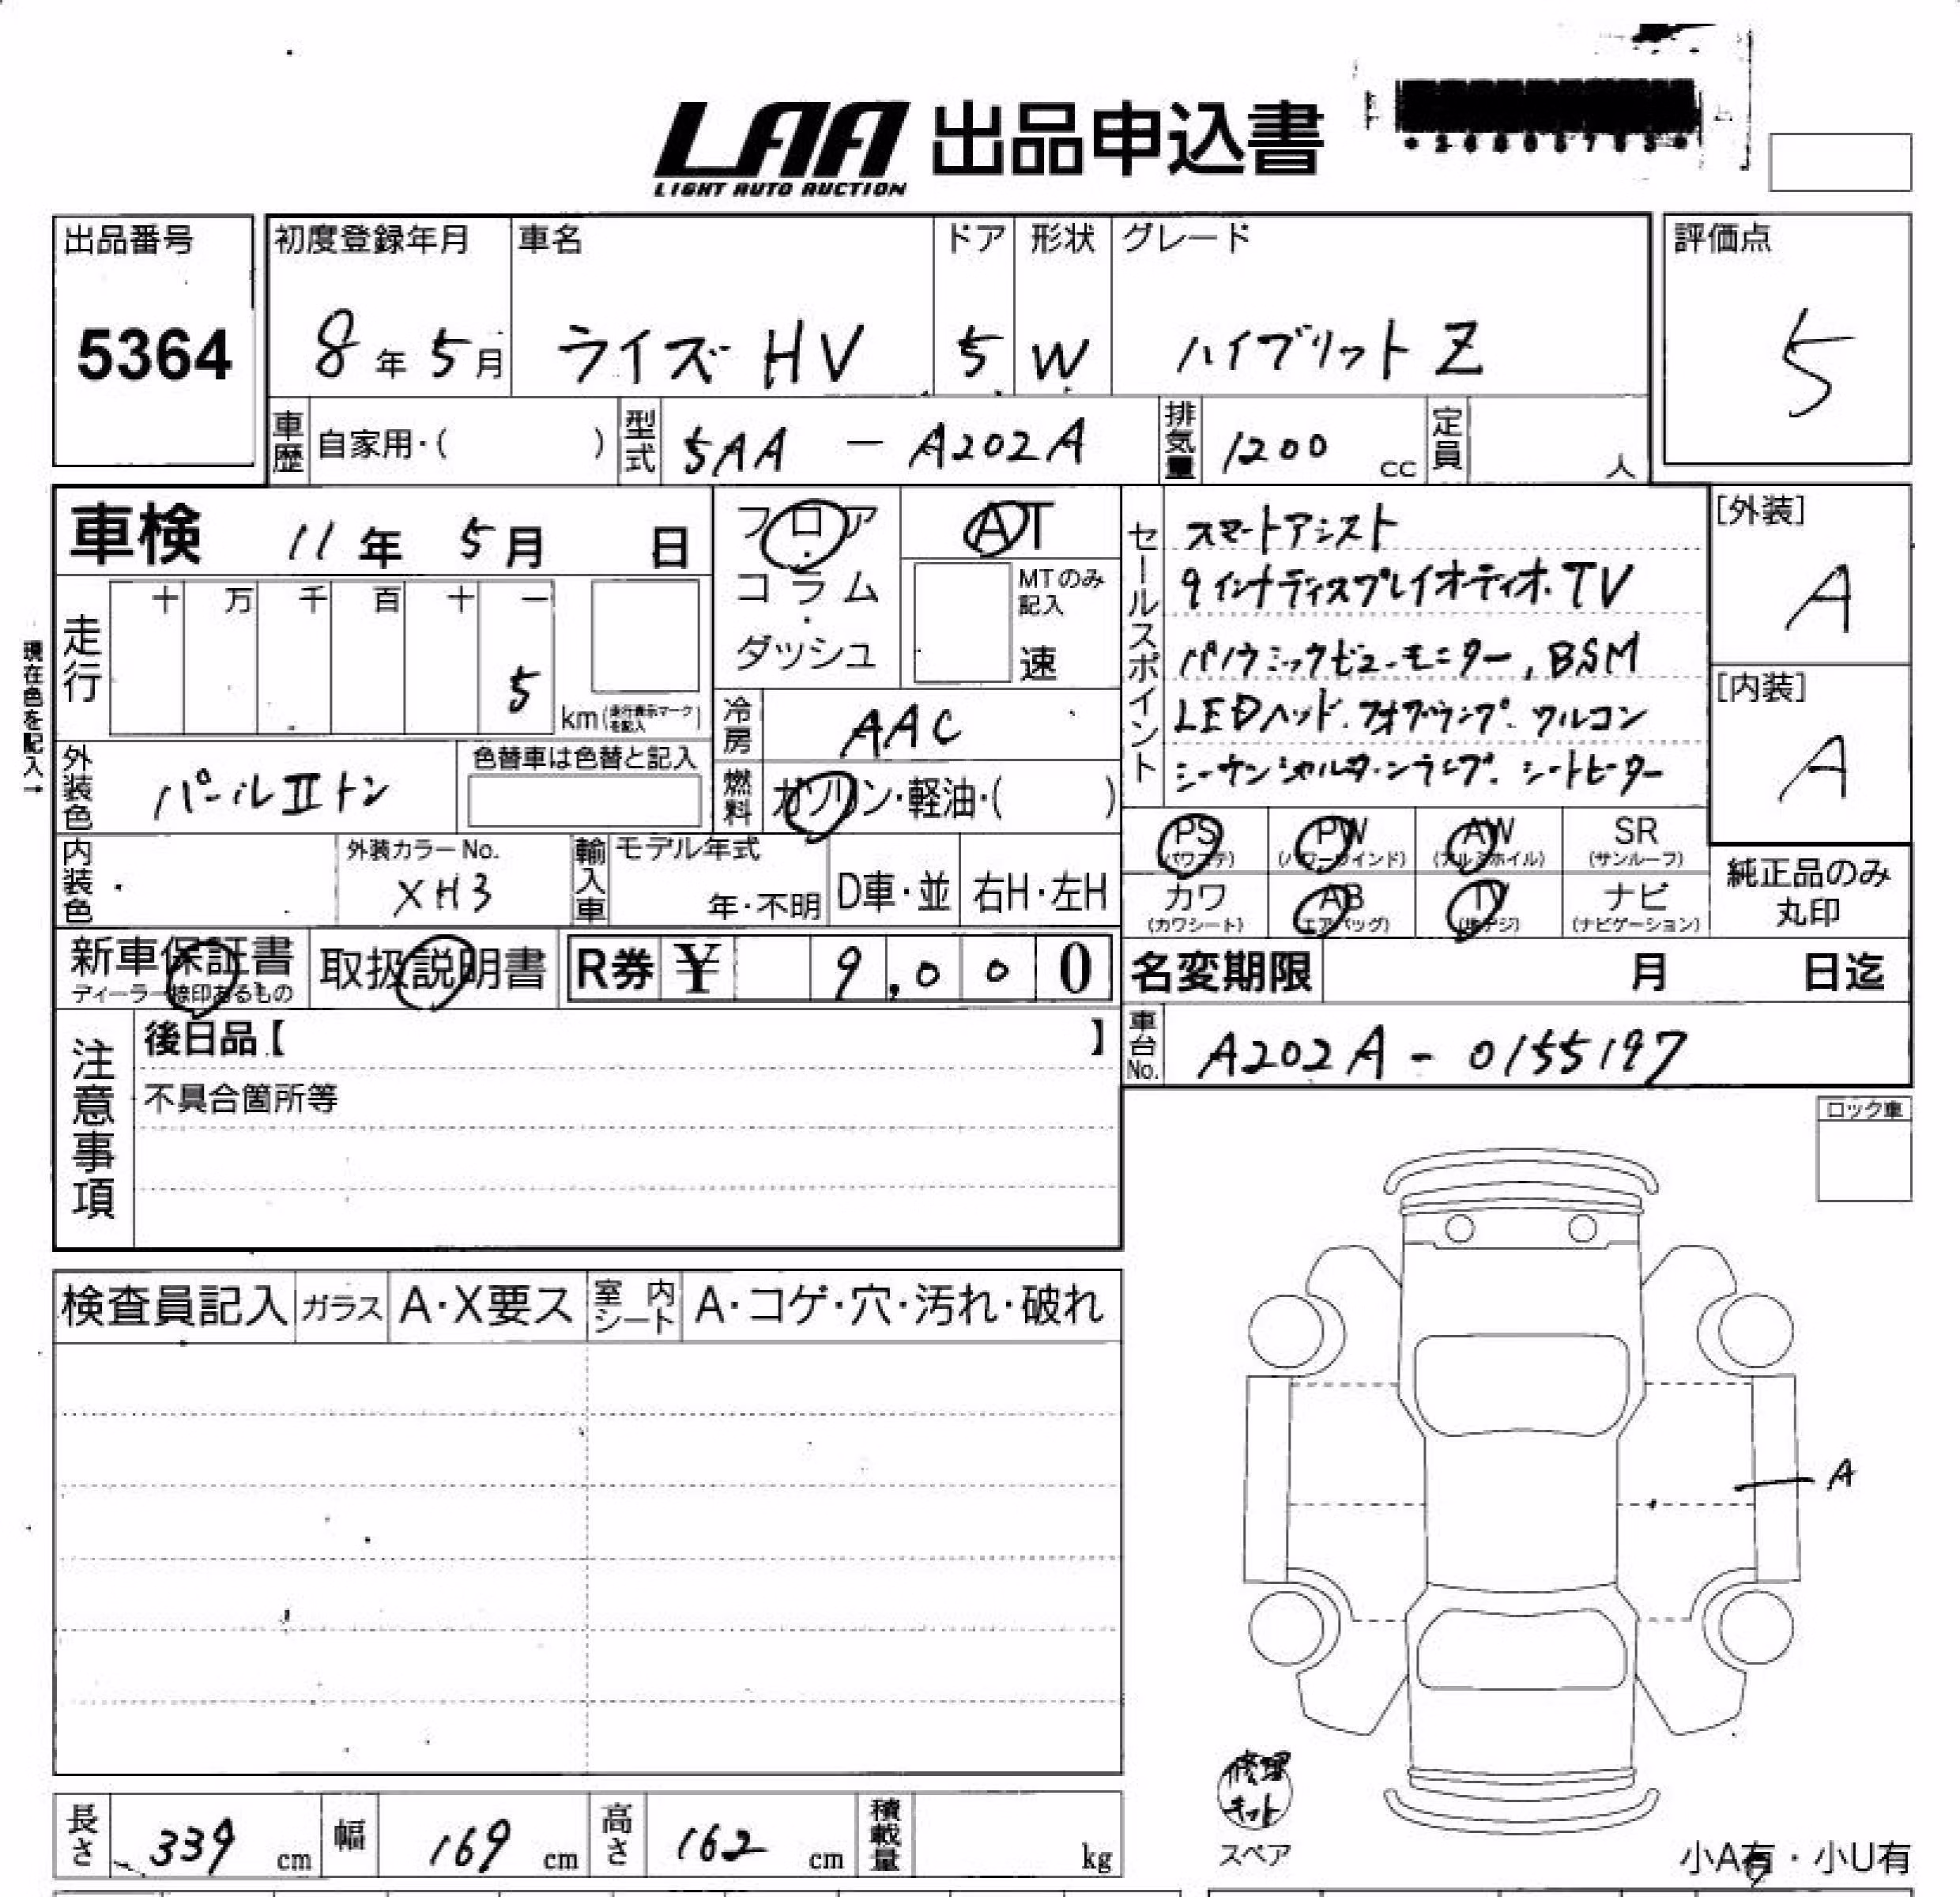 LAA 出品申込書
LIGHT AUTO AUCTION
出品番号
5364
初度登録年月
8年5月
車名
ライズ HV
ドア
5
形状
W
グレード
ハイブリット Z
評価点
5
車歴 自家用・( )
型式 5AA - A202A
排気量 1200 cc
定員 人
車検 11年 5月 日
フロア・コラム・ダッシュ
AT
MTのみ記入
速
走行 十 万 千 百 十 一
5
km(走行表示マークを記入)
現在色を記入→
冷房 AAC
外装色 パールⅡトン
色替車は色替と記入
燃料 ガソリン・軽油・( )
内装色
外装カラーNo.
XH3
輸入車 モデル年式
年・不明
D車・並
右H・左H
セールスポイント
スマートアシスト
9インチディスプレイオーディオ.TV
パノラミックビューモニター, BSM
LEDヘッド.フォグランプ.クルコン
シーケンシャルターンランプ.シートヒーター
[外装]
A
[内装]
A
PS (パワステ)
PW (パワーウインド)
AW (アルミホイル)
SR (サンルーフ)
カワ (カワシート)
AB (エアバッグ)
TV (地デジ)
ナビ (ナビゲーション)
純正品のみ丸印
新車保証書
ディーラー捺印あるもの
取扱説明書
R券 ¥ 9,000
名変期限 月 日迄
車台No. A202A - 0155197
注意事項
後日品【 】
不具合箇所等
ロック車
検査員記入
ガラス A・X要ス
室内シート A・コゲ・穴・汚れ・破れ
A
修理キット
スペア
小A有・小U有
長さ 339 cm
幅 169 cm
高さ 162 cm
積載量 kg